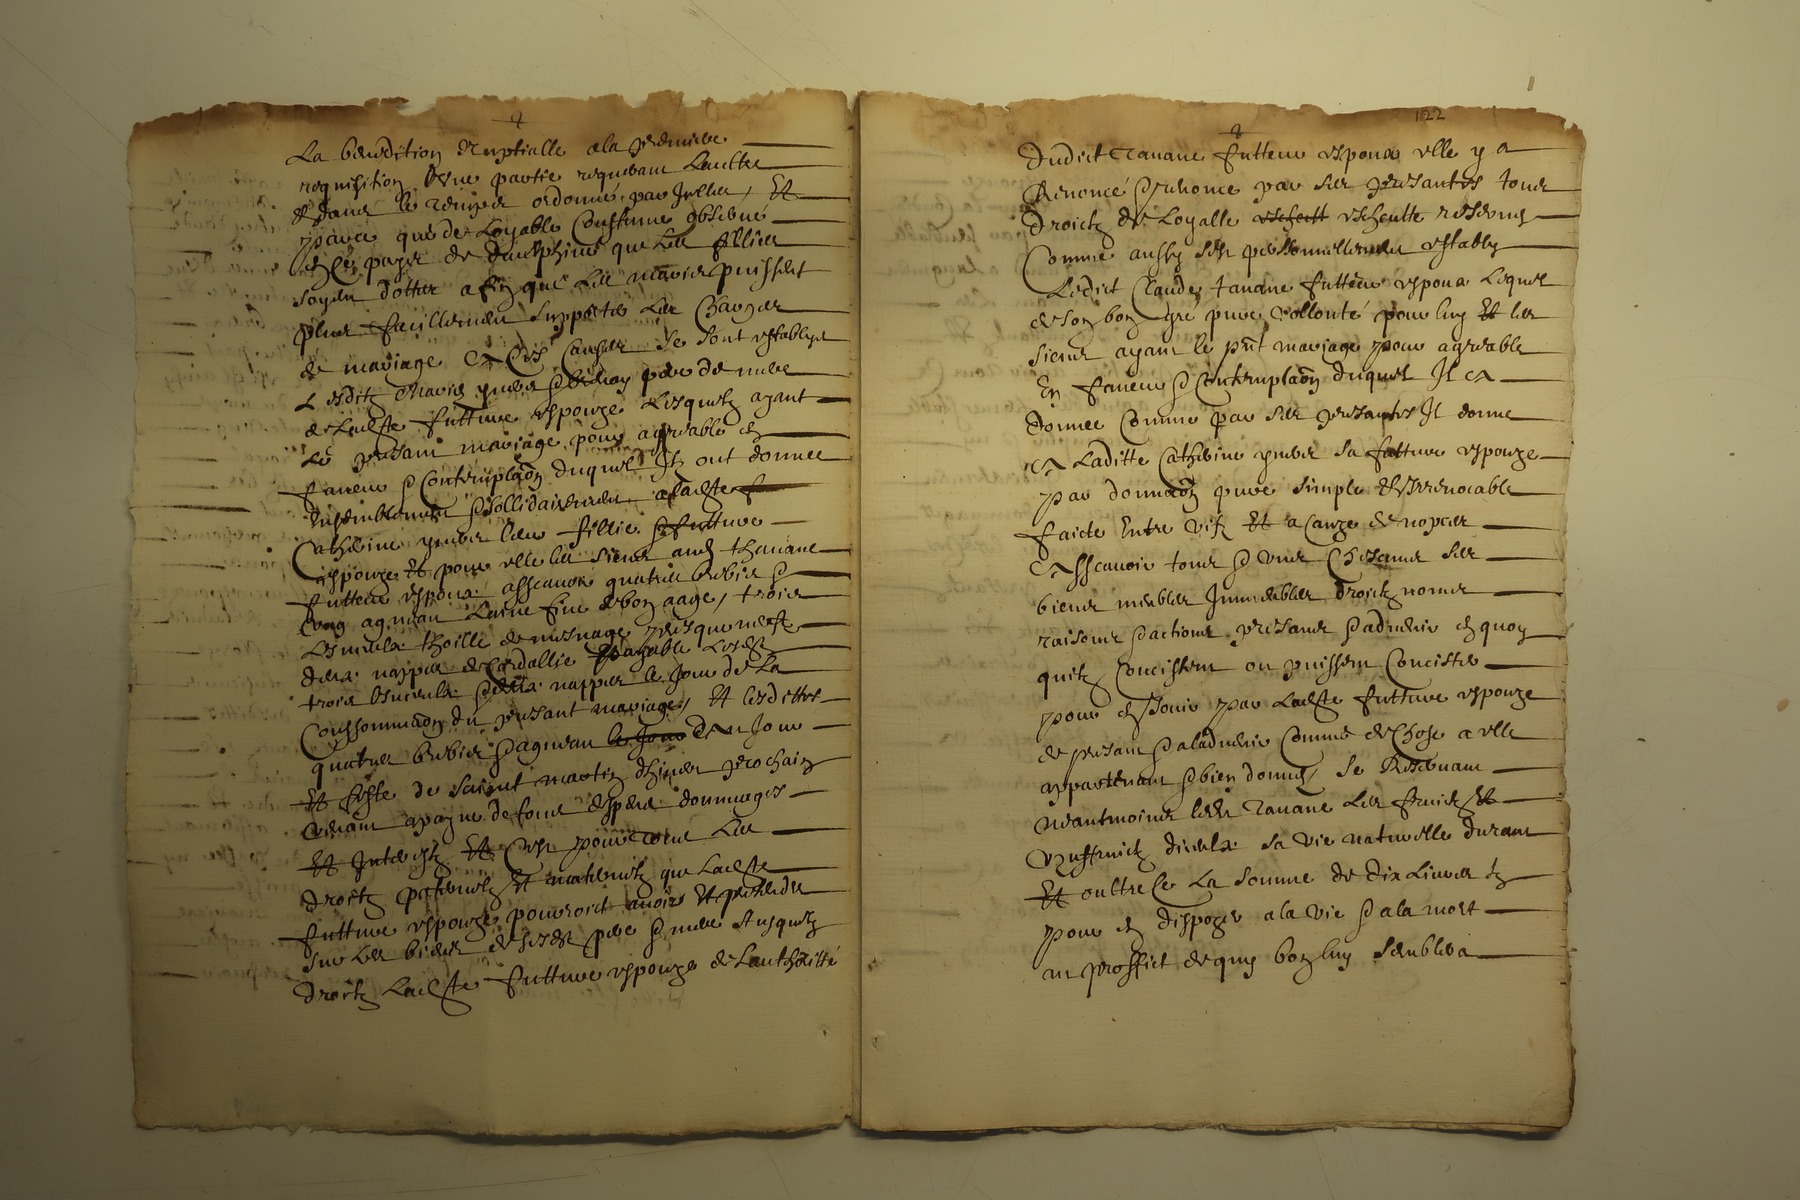 La benediction Nuptialle a la premiere
requisition d'Une partie requerant Laultre
et dans le temps ordonné par Jcelles, Et
parce que de Loyable Coustume observé
en ce pays de daulphiné que Les filles
soyent dottes afin que Les maris puissent
plus facillement supporter Les Charges
de mariage A Ces Causes se sont establys
Lesditz pere & mere
de Ladte future espouze Lesquelz ayant
Le present mariage pour agreable en
faveur & Contemplaon duquel Jlz ont donnee
ensemblement & sollidairement a ladte f
Catherine leur fillie & future
espouze Et pour elle les siens aud thavane
futteur espoux assavoir quatre brebis &
Ung agneau Laine fine de bon aage, trois
Linceulx thoille de mesnage presque neufz
deux nappes de Cordallie payable Lesdt
trois linceulx & deux nappes le Jour de La
Conssommaon du present mariage, Et lesdittes
quatre brebis & agneau le Jour Et au Jour
Et feste de saint martin d'hiver prochain
venant a payne de tous despens dommages
Et Jnterestz Et C'est pour tous Les
droitz paternelz Et maternelz que Ladte
future espouze pourroict avoir Et pretendre
sur Les biens de sesdt pere & mere Ausquelz
droitz Ladte future espouze de Lauthoritté
122
dudict Tavane futteur espoux elle y a
Renoncé & renonce par Les presantes tous
droictz de Loyalle escheitt escheutte reservés
Comme aussy s'est personnellement estably
Ledict Claude tavane futteur espoux Lequel
de son bon gré pure vollonté pour luy Et les
siens ayant le pnt mariage pour agreable
En faveur & Contemplaon duquel Jl a
donnee Comme par Les presantes Jl donne
A Laditte Catherine sa future espouze
par donnaon pure simple Et Jrrevocable
faicte Entre vifz Et a Cauze de nopces
Asscavoir tous & Uns Chescuns Ses
biens meubles Jmmeubles droictz noms
raisons & actions presans & advenir en quoy
quilz Concistent ou puissent Concister
pour en Jouir par Ladte future espouze
de presant & a ladvenir Comme de Chose a elle
appartenant & bien donné, se Reservant
neantmoins ledt Tavane Les fruictz Et
Uzuffruictz diceulx sa vie naturelle durant
Et oultre Ce La somme de dix Livres tz
pour en dispozer a la vie & a la mort
au proffict de quy bon luy semblera